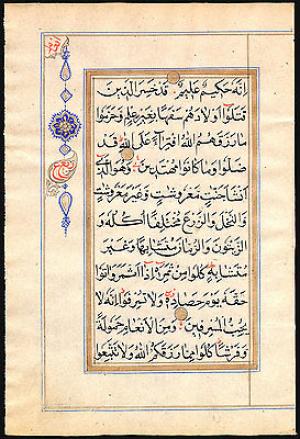 اِنَّهُ حَكِيمٌ عَلِيمٌ قَدْ خَسِرَ الَّذِينَ
قَتَلُوا اَوْلَادَهُمْ سَفَهًا بِغَيْرِ عِلْمٍ وَحَرَّمُوا
مَا رَزَقَهُمُ اللهُ افْتِرَآءً عَلَى اللهِ قَدْ
ضَلُّوا وَمَا كَانُوا مُهْتَدِينَ وَهُوَ الَّذِي
اَنْشَاَ جَنَّاتٍ مَعْرُوشَاتٍ وَغَيْرَ مَعْرُوشَاتٍ
وَالنَّخْلَ وَالزَّرْعَ مُخْتَلِفًا اُكُلُهُ وَ
الزَّيْتُونَ وَالرُّمَّانَ مُتَشَابِهًا وَغَيْرَ
مُتَشَابِهٍ كُلُوا مِنْ ثَمَرِهِ اِذَا اَثْمَرَ وَاٰتُوا
حَقَّهُ يَوْمَ حَصَادِهِ وَلَا تُسْرِفُوا اِنَّهُ لَا
يُحِبُّ الْمُسْرِفِينَ وَمِنَ الْاَنْعَامِ حَمُولَةً
وَفَرْشًا كُلُوا مِمَّا رَزَقَكُمُ اللهُ وَلَا تَتَّبِعُوا